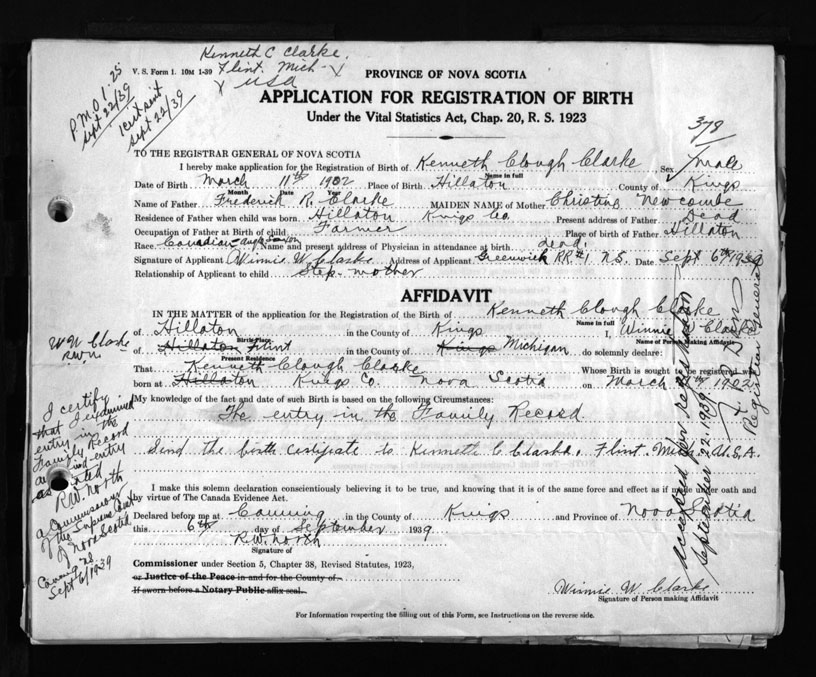 Kenneth C Clarke.
V. S. Form 1. 10M 1-39 Flint. Mich
USA
P.M.O 1.25
Sept 22/39
Cert sent
Sept 22/39
PROVINCE OF NOVA SCOTIA
APPLICATION FOR REGISTRATION OF BIRTH
Under the Vital Statistics Act, Chap. 20, R. S. 1923
378
TO THE REGISTRAR GENERAL OF NOVA SCOTIA
I hereby make application for the Registration of Birth of Kenneth Clough Clarke Sex Male
Name in full
Date of Birth March 11th 1902 Place of Birth Hillaton County of Kings
Month Date Year
Name of Father Frederick R. Clarke MAIDEN NAME of Mother Christine Newcombe
Residence of Father when child was born Hillaton Kings Co. Present address of Father Dead
Occupation of Father at Birth of child Farmer Place of birth of Father Hillaton
Race Canadian - Anglo Saxon Name and present address of Physician in attendance at birth dead.
Signature of Applicant Winnie W Clarke Address of Applicant Greenwich RR#1 N.S. Date Sept 6th 1939
Relationship of Applicant to child Step-mother
AFFIDAVIT
IN THE MATTER of the application for the Registration of the Birth of Kenneth Clough Clarke
Name in full
of Hillaton in the County of Kings I, Winnie W Clarke
Birth Place Name of Person Making Affidavit
of Hillaton Flint in the County of Kings Michigan do solemnly declare:
Present Residence
That Kenneth Clough Clarke Whose Birth is sought to be registered was
born at Hillaton Kings Co. Nova Scotia on March 11th 1902
My knowledge of the fact and date of such Birth is based on the following Circumstances:
The entry in the Family Record
Send the birth certificate to Kenneth C Clarke. Flint. Mich. U.S.A.
I make this solemn declaration conscientiously believing it to be true, and knowing that it is of the same force and effect as if made under oath and
by virtue of The Canada Evidence Act.
Declared before me at Canning in the County of Kings and Province of Nova Scotia
this 6th day of September 1939
R.W. North
Signature of
Commissioner under Section 5, Chapter 38, Revised Statutes, 1923,
or Justice of the Peace in and for the County of
If sworn before a Notary Public affix seal.
Winnie W Clarke
Signature of Person making Affidavit
For Information respecting the filling out of this Form, see Instructions on the reverse side.
W W Clarke
RWN
I certify
that I examined
entry in the
Family Record
and find entry
as stated
R.W. North
a Commissioner
of the Supreme Court
of Nova Scotia
Canning NS
Sept 6/1939
Accepted for registration
September 22 1939
Registrar General